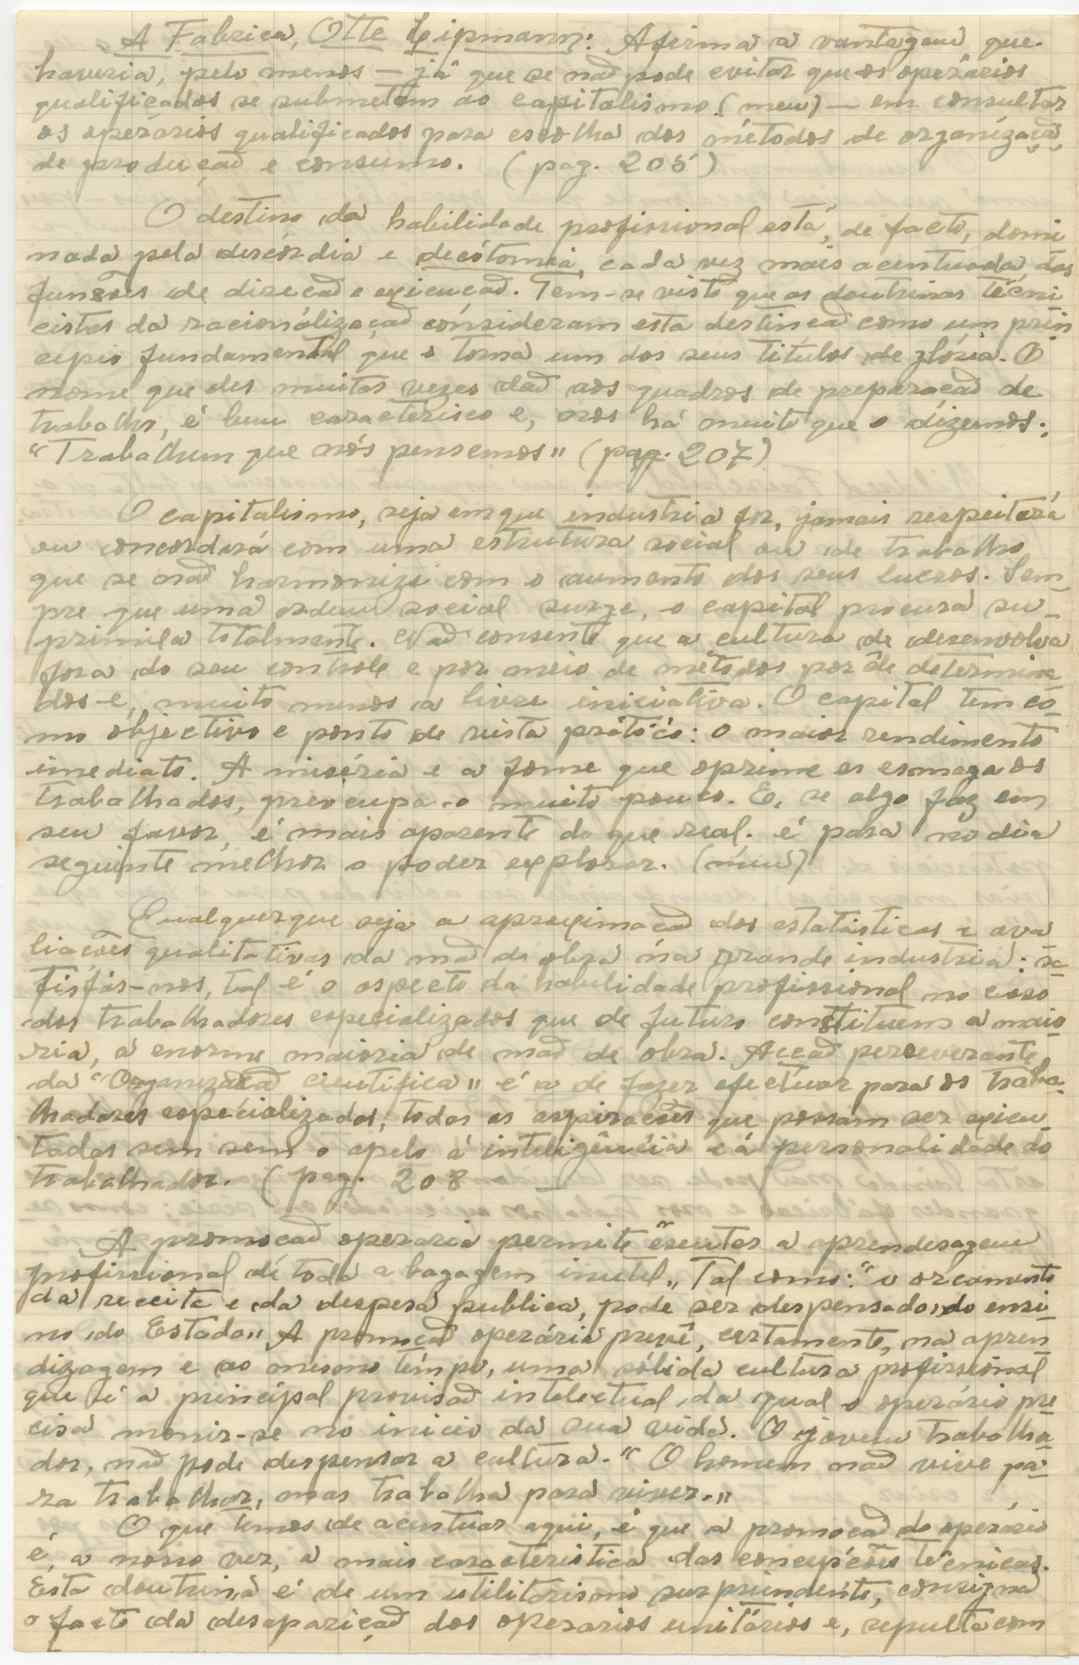 A Fabrica, Otte Lipmann: Aferma a vantagem que
haveria, pelo menos — já que se não pode evitar que os operários
qualificados se submetam ao capitalismo (meu) — em consultar
os operários qualificados para escolha dos métodos de organização
de produção e consumo. (pag. 205)
O destino da habilidade profissional está, de facto, domi
nada pela discórdia e decótomia, cada vez mais acentuada, das
funsões de direção e execução. Tem-se visto que as doutrinas técni
cistas da racionalização cónsideram esta destinção como um prin
cipio fundamental que o torna um dos seus titulos de glória. O
nome que eles muitas vezes dão aos quadros de preparação de
trabalho, é bem caracterisco e, nos há muito que o dizemos:
"Trabalhem que nós pensemos" (pag. 207)
O capitalismo, seja em que industria for, jamais respeitará
ou concordará com uma estrutura social ou de trabalho
que se não harmonize com o aumento dos seus lucros. Sem-
pre que uma ordem social surge, o capital procura su-
primila totalmente. Não consente que a cultura de desenvolva
fora do seu controle e por meio de métodos por êle determina-
dos e, muito menos a livre iniciativa. O capital tem co-
mo objectivo e ponto de vista prático: o maior rendimento
imediato. A miséria e a fome que oprime os esmaga os
trabalhados, preocupa-o muito pouco. E, se algo faz em
seu favor, é mais aparente do que real. é para no dia
seguinte melhor o poder explorar. (meu)
Qualquer que seja a aproximação dos estatisticas e ava
liações qualitativas da mão de obra na grande industria: sa-
tisfás-nos, tal é o aspecto da habilidade profissional no caso
dos trabalhadores especializados que de futuro constituem a maio
ria, a enorme maioria de mão de obra. Acção perseverante
da "Organização cientifica" é a de fazer efectuar para os traba-
lhadores especializados, todas as aspirações que possam ser execu
tadas sem sem o apelo à inteligência e á personalidade do
trabalhador. (pag. 208
A promoção operaria permite êscutar a aprendesagem
profissional de toda a bagagem inutel" Tal como: "o orcamento
da receita e da despesa publica, pode ser despensado, do ensi
no do Estado" A promoção operária prevê, certamente, na apren
dizagem e ao mesmo tempo, uma sólida cultura profissional
que é a principal provisão intelectual da qual o operário pre
cisa munir-se no inicio da sua vida. O jovem trabalha-
dor, não pode despensar a cultura. "O homem não vive pa-
ra trabalhar, mas trabalha para viver."
O que temos de acentuar aqui, é que a promoção do operário
é, a nosso ver, a mais caracteristica das concepcões técnicas.
Esta doutrina é de um utilitarismo surpriendente, consigna
o facto da desaparição dos operarios unitários e, repulta com